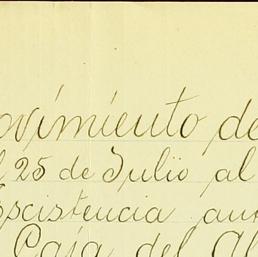 ovimiento de
l 25 de Julio al
Escistencia ant
Caja del Al